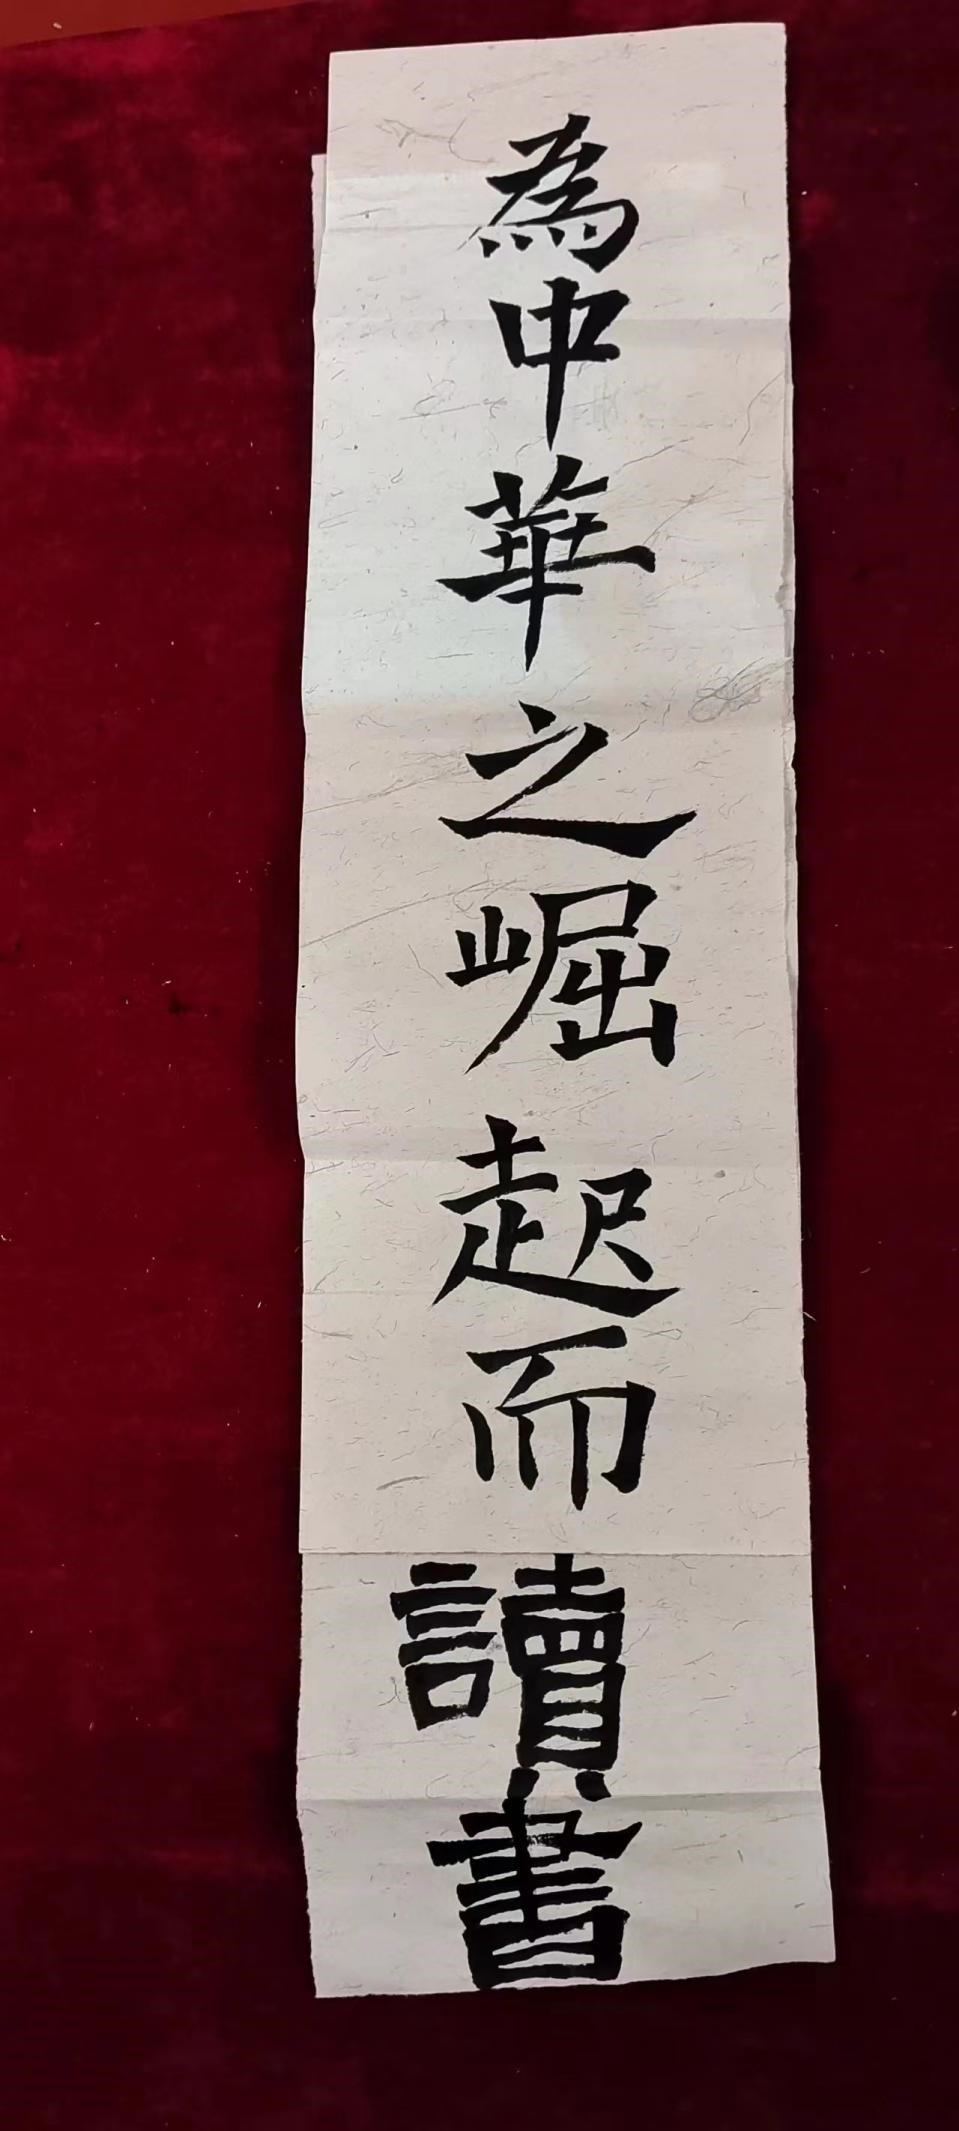 為中華之崛起而讀書